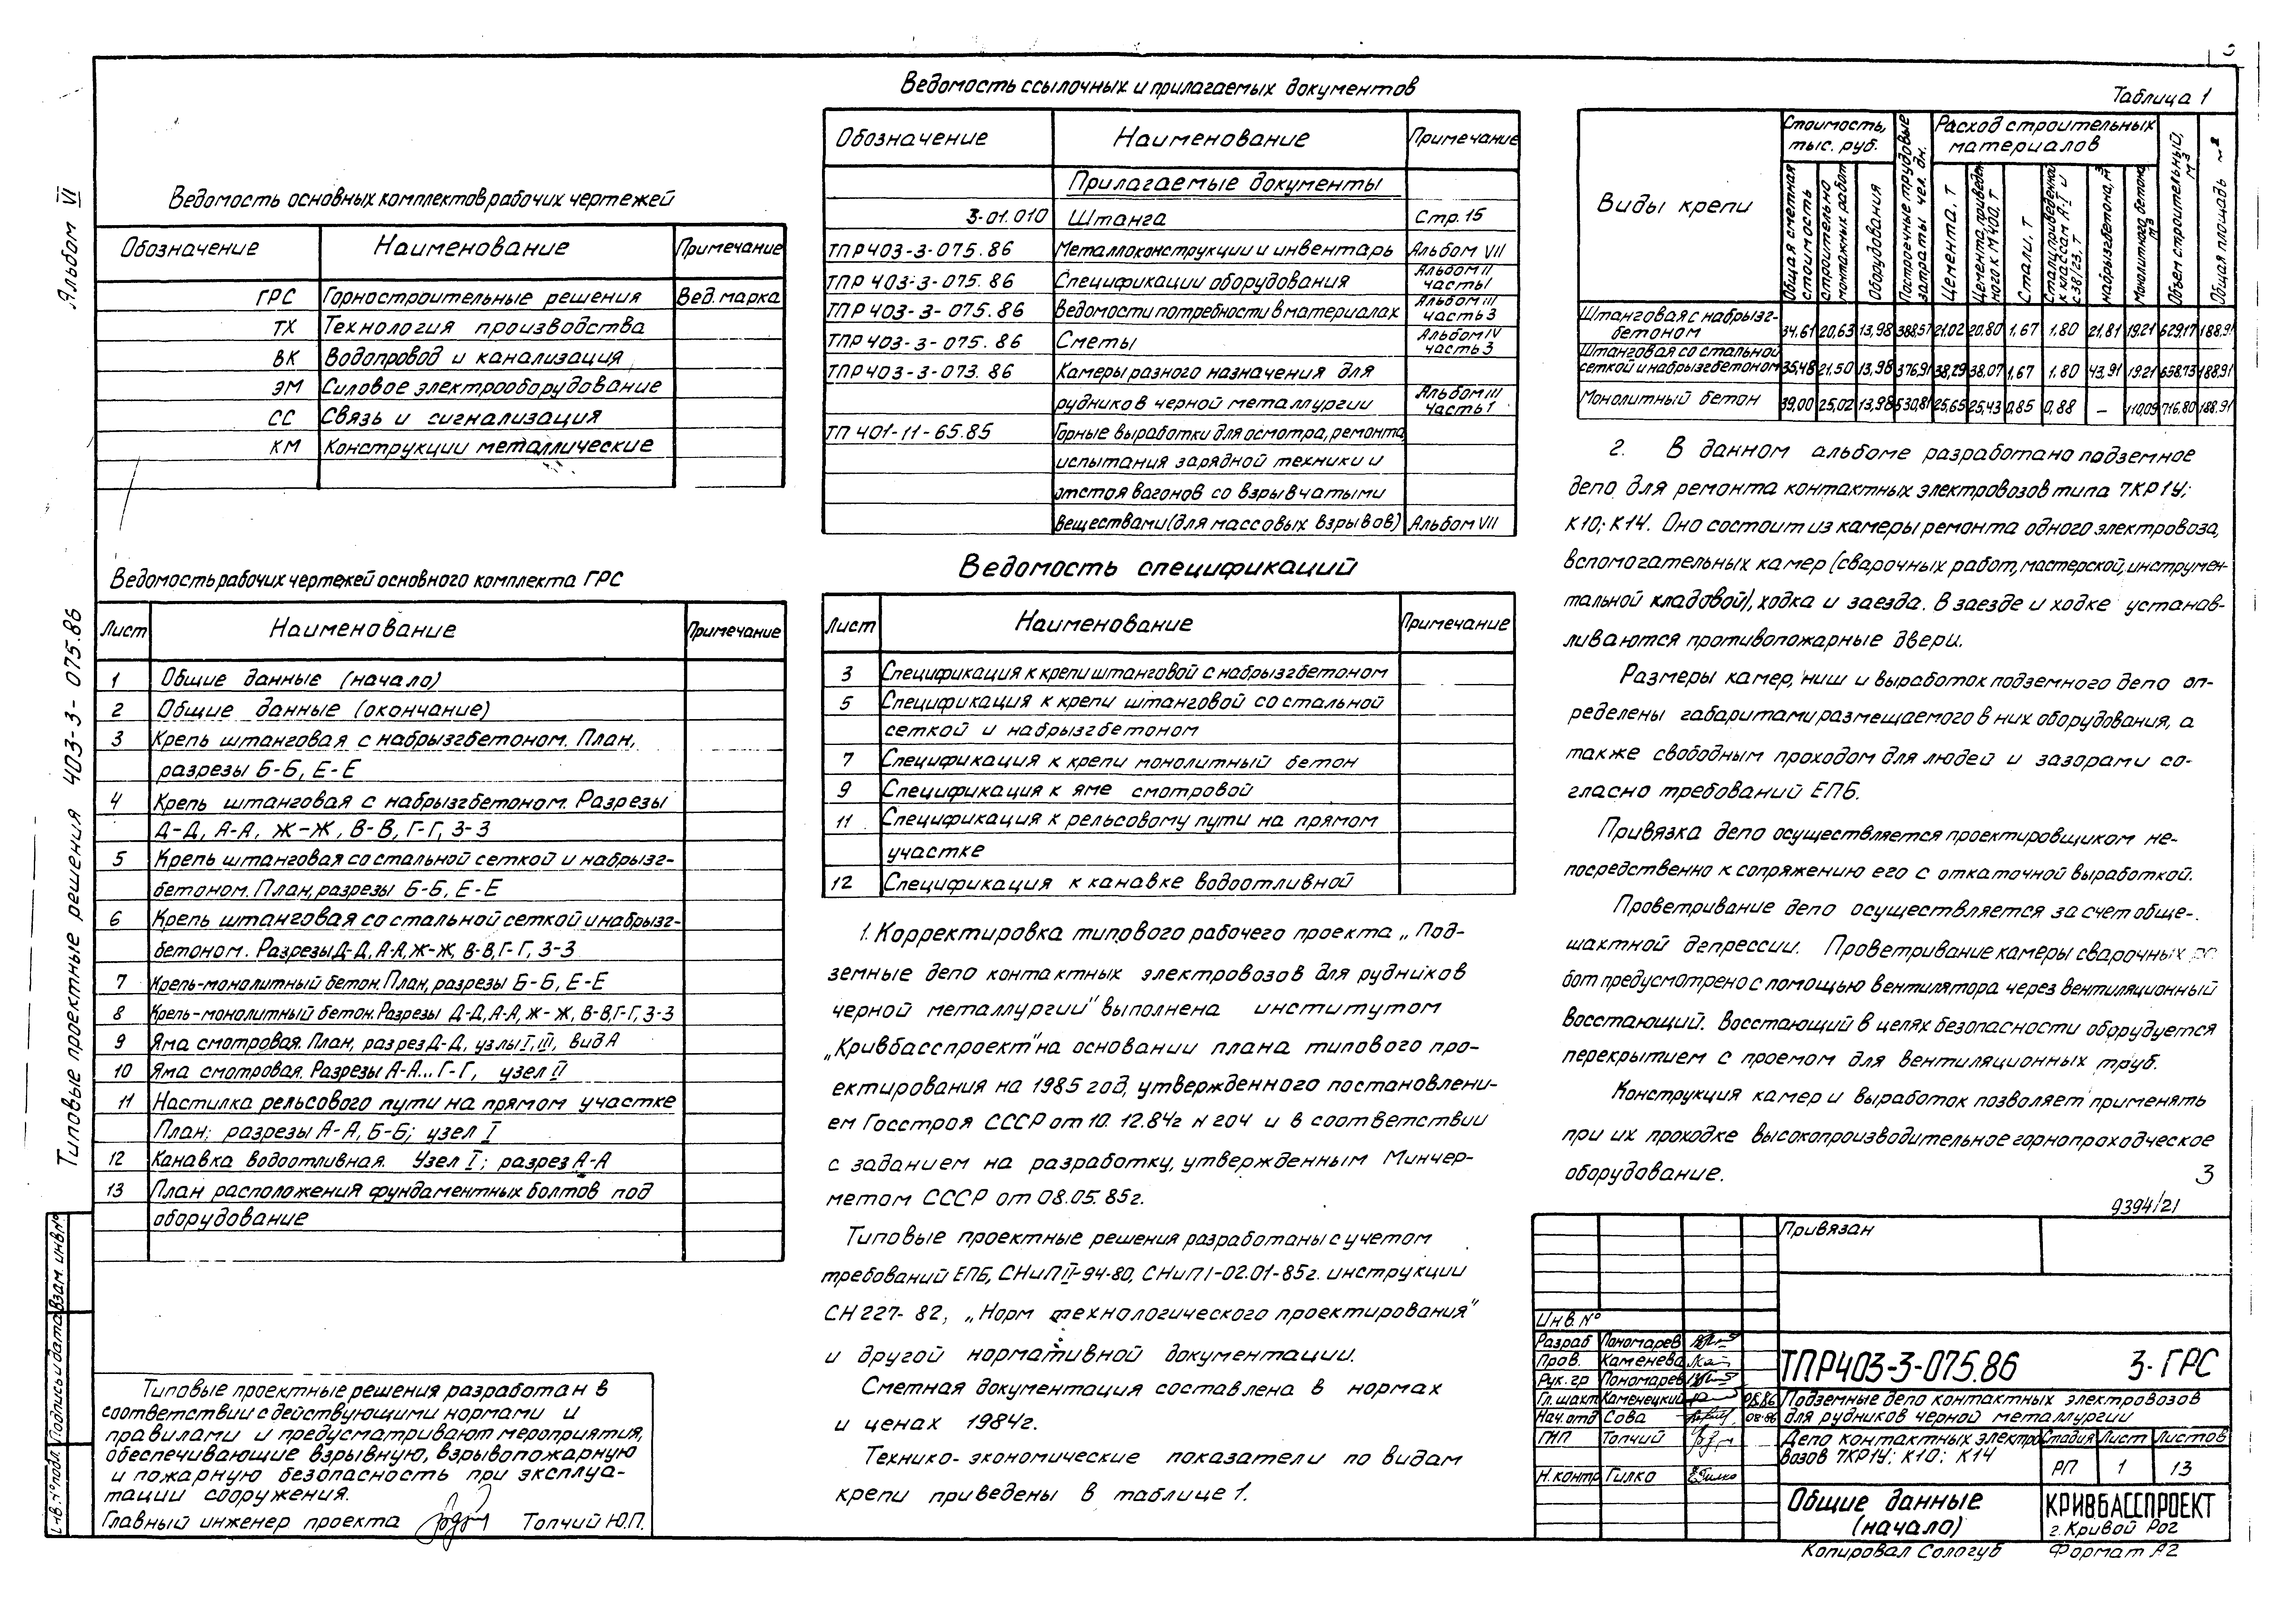 Альбом VI
Типовые проектные решения 403-3-075.86
Ведомость основных комплектов рабочих чертежей
Обозначение Наименование Примечание
ГРС Горностроительные решения Вед. марка
ТХ Технология производства
ВК Водопровод и канализация
ЭМ Силовое электрооборудование
СС Связь и сигнализация
КМ Конструкции металлические
Ведомость рабочих чертежей основного комплекта ГРС
Лист Наименование Примечание
1 Общие данные (начало)
2 Общие данные (окончание)
3 Крепь штанговая с набрызгбетоном. План,
разрезы Б-Б, Е-Е
4 Крепь штанговая с набрызгбетоном. Разрезы
Д-Д, А-А, Ж-Ж, В-В, Г-Г, З-З
5 Крепь штанговая со стальной сеткой и набрызг-
бетоном. План, разрезы Б-Б, Е-Е
6 Крепь штанговая со стальной сеткой и набрызг-
бетоном. Разрезы Д-Д, А-А, Ж-Ж, В-В, Г-Г, З-З
7 Крепь-монолитный бетон. План, разрезы Б-Б, Е-Е
8 Крепь-монолитный бетон. Разрезы Д-Д, А-А, Ж-Ж, В-В, Г-Г, З-З
9 Яма смотровая. План, разрез Д-Д, узлы I, III, вид А
10 Яма смотровая. Разрезы А-А...Г-Г, узел II
11 Настилка рельсового пути на прямом участке
План; разрезы А-А, Б-Б; узел I
12 Канавка водоотливная. Узел I; разрез А-А
13 План расположения фундаментных болтов под
оборудование
Типовые проектные решения разработан в
соответствии с действующими нормами и
правилами и предусматривают мероприятия,
обеспечивающие взрывную, взрывопожарную
и пожарную безопасность при эксплуа-
тации сооружения.
Главный инженер проекта Топчий Ю.П.
Взам. инв. №
Подпись и дата
Инв. № подл.
Ведомость ссылочных и прилагаемых документов
Обозначение Наименование Примечание
Прилагаемые документы
3-01.010 Штанга Стр. 15
ТПР 403-3-075.86 Металлоконструкции и инвентарь Альбом VII
ТПР 403-3-075.86 Спецификации оборудования Альбом II часть I
ТПР 403-3-075.86 Ведомости потребности в материалах Альбом III часть 3
ТПР 403-3-075.86 Сметы Альбом IV часть 3
ТПР 403-3-073.86 Камеры разного назначения для
рудников черной металлургии Альбом III часть I
ТП 401-11-65.85 Горные выработки для осмотра, ремонта
испытания зарядной техники и
отстоя вагонов со взрывчатыми
веществами (для массовых взрывов) Альбом VII
Ведомость спецификаций
Лист Наименование Примечание
3 Спецификация к крепи штанговой с набрызгбетоном
5 Спецификация к крепи штанговой со стальной
сеткой и набрызгбетоном
7 Спецификация к крепи монолитный бетон
9 Спецификация к яме смотровой
11 Спецификация к рельсовому пути на прямом
участке
12 Спецификация к канавке водоотливной
1. Корректировка типового рабочего проекта „Под-
земные депо контактных электровозов для рудников
черной металлургии" выполнена институтом
„Кривбасспроект" на основании плана типового про-
ектирования на 1985 год, утвержденного постановлени-
ем Госстроя СССР от 10.12.84г N 204 и в соответствии
с заданием на разработку, утвержденным Минчер-
метом СССР от 08.05.85г.
Типовые проектные решения разработаны с учетом
требований ЕПБ, СНиП II-94-80, СНиП I-02.01-85г. инструкции
СН 227-82, „Норм технологического проектирования"
и другой нормативной документации.
Сметная документация составлена в нормах
и ценах 1984г.
Технико-экономические показатели по видам
крепи приведены в таблице 1.
Таблица 1
Виды крепи
Стоимость, тыс. руб.
Общая сметная стоимость
Строительно монтажных работ
Оборудования
Построечные трудовые затраты чел. дн.
Расход строительных материалов
Цемента, т
Цемента, приведенного к М400, т
Стали, т
Стали, приведенной к классам А-I и С38/23, т
Набрызгбетона, м3
Монолитного бетона м3
Объем строительный, м3
Общая площадь м2
Штанговая с набрызг-
бетоном 34,61 20,63 13,98 388,57 21,02 20,80 1,67 1.80 21,81 19.21 629,17 188.91
Штанговая со стальной
сеткой и набрызгбетоном 35,48 21,50 13,98 376,91 38,29 38,07 1,67 1.80 43,91 19.21 658.73 188.91
Монолитный бетон 39,00 25,02 13,98 530,81 25,65 25,43 0,85 0,88 — 110,09 716,80 188.91
2. В данном альбоме разработано подземное
депо для ремонта контактных электровозов типа 7КР1У;
К10; К14. Оно состоит из камеры ремонта одного электровоза,
вспомогательных камер (сварочных работ, мастерской, инструмен-
тальной кладовой), ходка и заезда. В заезде и ходке устанав-
ливаются противопожарные двери.
Размеры камер, ниш и выработок подземного депо оп-
ределены габаритами размещаемого в них оборудования, а
также свободным проходом для людей и зазорами со-
гласно требований ЕПБ.
Привязка депо осуществляется проектировщиком не-
посредственно к сопряжению его с откаточной выработкой.
Проветривание депо осуществляется за счет обще-
шахтной депрессии. Проветривание камеры сварочных ра-
бот предусмотрено с помощью вентилятора через вентиляционный
восстающий. Восстающий в целях безопасности оборудуется
перекрытием с проемом для вентиляционных труб.
Конструкция камер и выработок позволяет применять
при их проходке высокопроизводительное горнопроходческое
оборудование.
3
9394/21
Привязан
Инв. №
Разраб Пономарев
Пров. Каменева
Рук. гр Пономарев
Гл. шахт Каменецкий 08.86
Нач. отд Сова 08.86
ГИП Топчий
Н. контр Гилко
ТПР403-3-075.86 3-ГРС
Подземные депо контактных электровозов
для рудников черной металлургии
Депо контактных электро-
возов 7КР1У; К10; К14
Стадия Лист Листов
РП 1 13
Общие данные
(начало)
КРИВБАССПРОЕКТ
г. Кривой Рог
Копировал Сологуб Формат А2